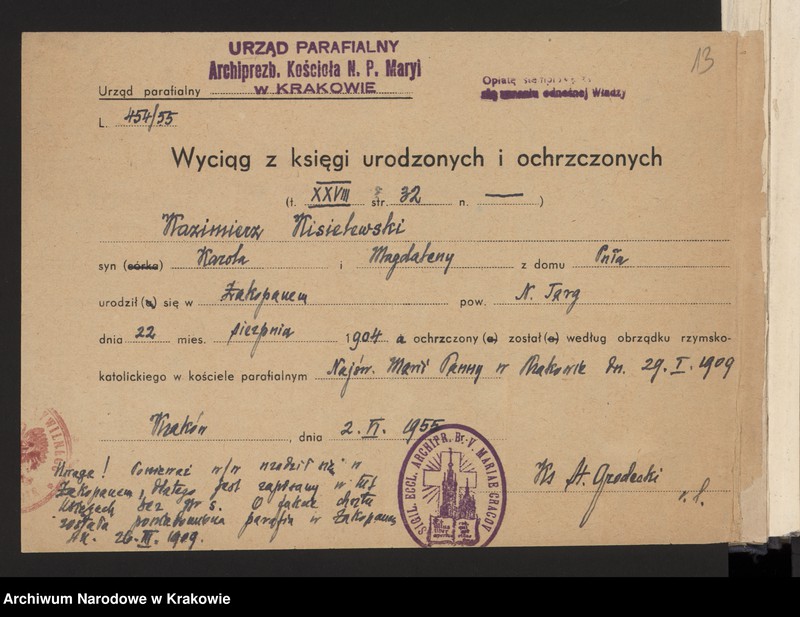 13
URZĄD PARAFIALNY
Archiprezb. Kościoła N. P. Maryi
w KRAKOWIE
Urząd parafialny
Opłatę
odnośnej Władzy
L. 454/55
Wyciąg z księgi urodzonych i ochrzczonych
(t. XXVIII str. 32 n. — )
Kazimierz Kisielewski
syn (córka) Karola i Magdaleny z domu Pnła
urodził(a) się w Zakopanem pow. N. Targ
dnia 22 mies. sierpnia 1904 a ochrzczony(a) został(a) według obrządku rzymsko-
katolickiego w kościele parafialnym Najśw. Marii Panny w Krakowie dn. 29. I. 1909
Kraków, dnia 2. VI. 1955
Uwaga! Ponieważ w/w urodził się w
Zakopanem, dlatego jest zapisany w tut.
księgach bez Nr s. O fakcie chrztu
została powiadomiona parafia w Zakopanem
dn. 26. III. 1909.
SIGIL. ECCL. ARCHIPR. B. V. MARIAE CRACOV
Ks St. Grodecki
Archiwum Narodowe w Krakowie